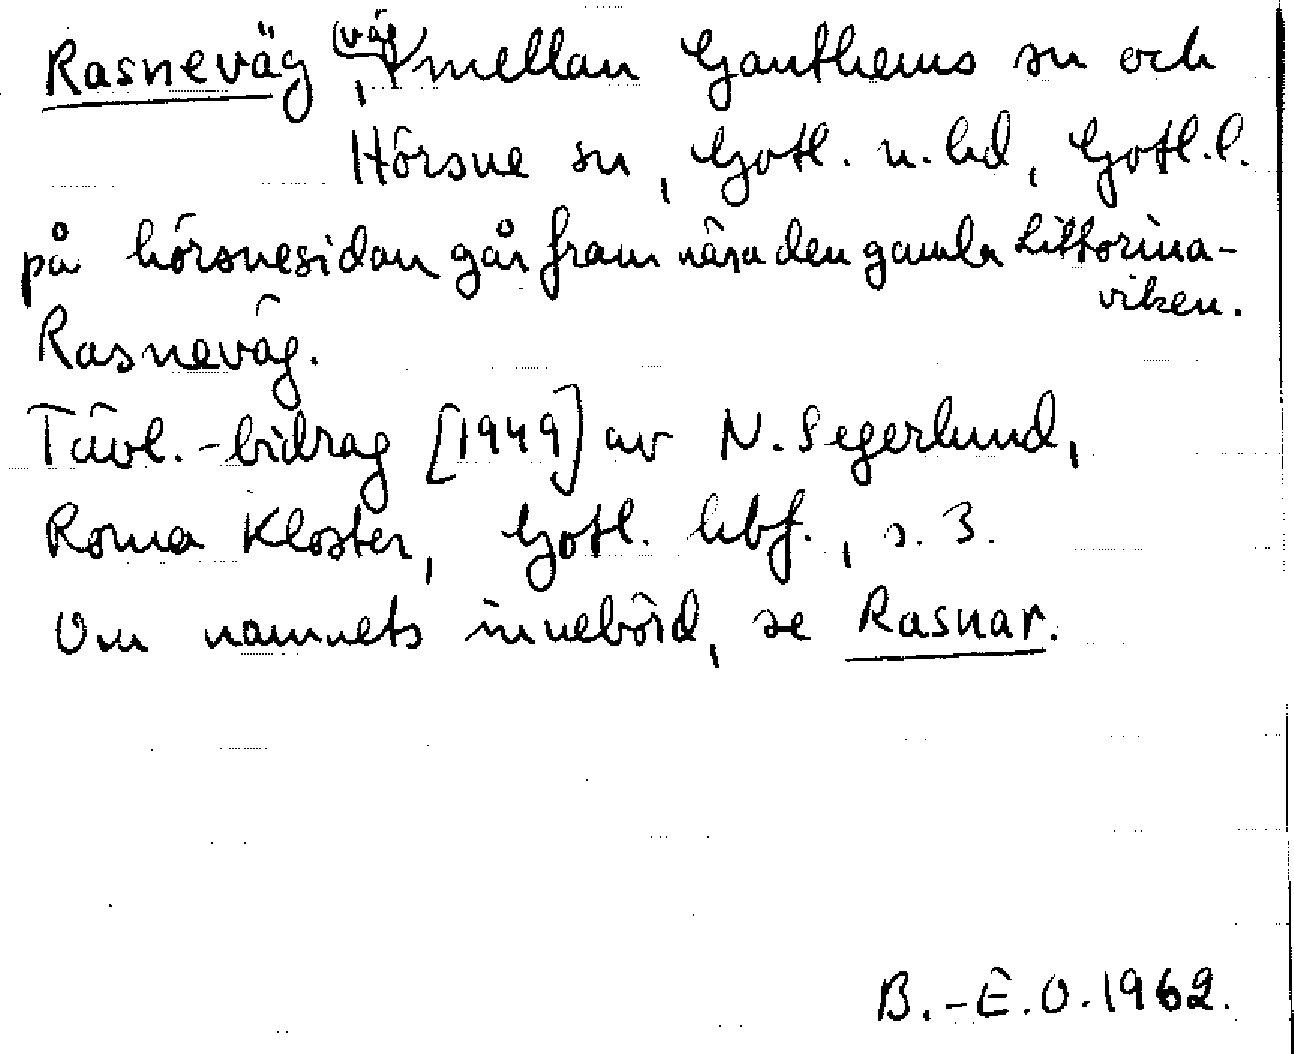 Rasneväg, (väg) mellan Ganthems sn och
Hörsne sn, Gotl. n. hd, Gotl. l.
på hörsnesidan går fram nära den gamla Littorina-
viken.
Rasneväg.
Tävl.-bidrag [1949] av N. Segerlund,
Roma Kloster, Gotl. hbf., s. 3.
Om namnets innebörd, se Rasnar.
B.-E.O. 1962.